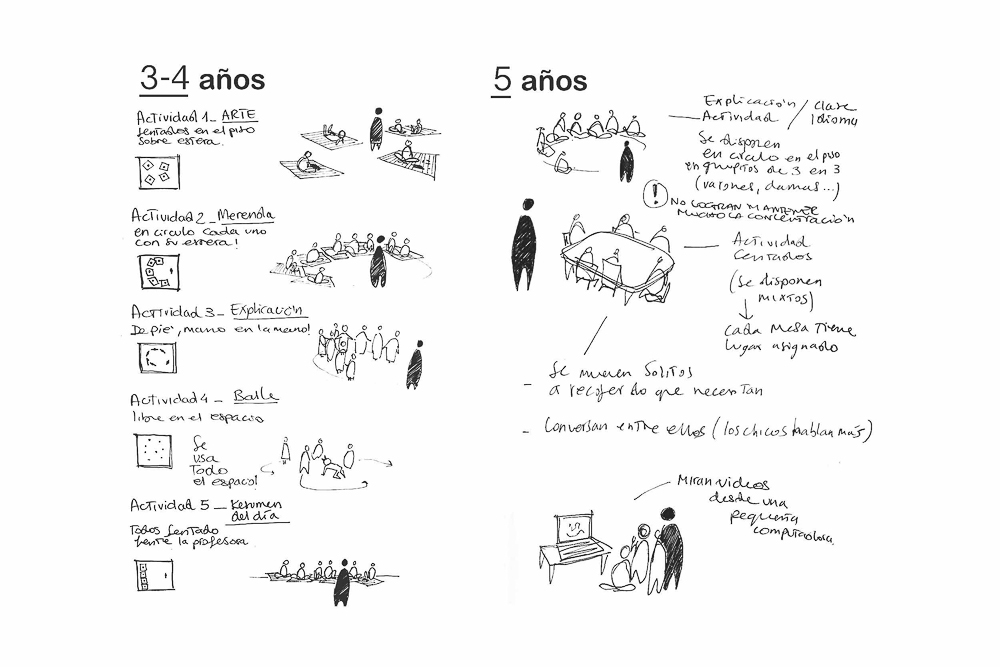 3-4 años
Actividad 1_ ARTE
sentados en el piso
sobre estera.
Actividad 2_ Merenda
en circulo cada uno
con su estera!
Actividad 3_ Explicación
De pie, mano en la mano!
Actividad 4_ Baile
libre en el espacio
Se
usa
Todo
el espacio!
Actividad 5_ Resumen
del día
Todos sentado
frente la profesora
5 años
Explicación / Clase
Actividad / Idioma
Se disponen
en círculo en el piso
en grupitos de 3 en 3
(varones, damas...)
! NO LOGRAN MANTENER
MUCHO LA CONCENTRACIÓN
Actividad
Centados
(Se disponen
mixtos)
Cada mesa tiene
lugar asignado
- Se mueven solitos
a recoger lo que necesitan
- Conversan entre ellos (los chicos hablan más)
Miran videos
desde una
pequeña
computadora.